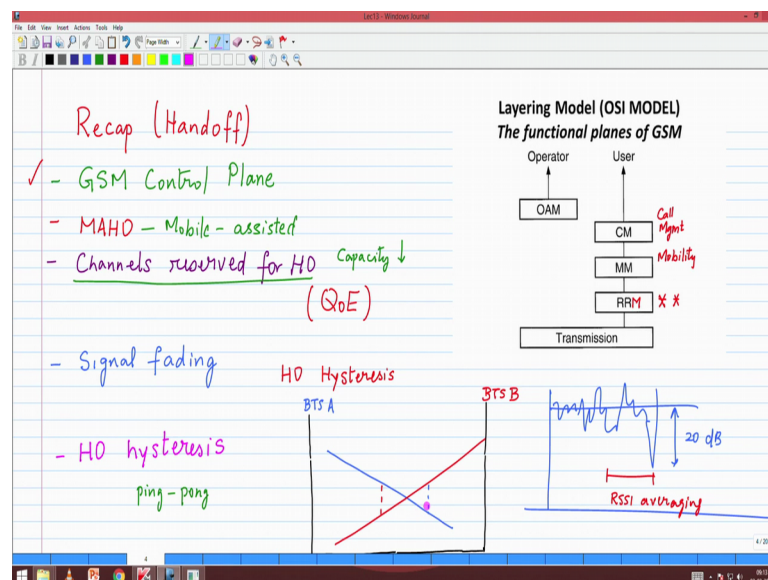 Lec13 - Windows Journal
File Edit View Insert Actions Tools Help
Page Width
B I
Recap (Handoff)
- GSM Control Plane
- MAHO - Mobile - assisted
- Channels reserved for HO Capacity ↓
(QoE)
- Signal fading
- HO hysteresis
ping-pong
HO Hysteresis
BTS A
BTS B
Layering Model (OSI MODEL)
The functional planes of GSM
Operator User
OAM
CM Call Mgmt
MM Mobility
RRM * *
Transmission
20 dB
RSSI averaging
4
4 / 20